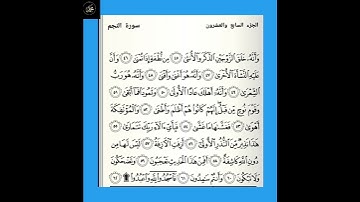 سورة النجم
الجزء السابع والعشرون
وَأَنَّهُۥ خَلَقَ ٱلزَّوۡجَيۡنِ ٱلذَّكَرَ وَٱلۡأُنثَىٰ ٤٥ مِن نُّطۡفَةٍ إِذَا تُمۡنَىٰ ٤٦ وَأَنَّ
عَلَيۡهِ ٱلنَّشۡأَةَ ٱلۡأُخۡرَىٰ ٤٧ وَأَنَّهُۥ هُوَ أَغۡنَىٰ وَأَقۡنَىٰ ٤٨ وَأَنَّهُۥ هُوَ رَبُّ
ٱلشِّعۡرَىٰ ٤٩ وَأَنَّهُۥٓ أَهۡلَكَ عَادًا ٱلۡأُولَىٰ ٥٠ وَثَمُودَاْ فَمَآ أَبۡقَىٰ ٥١
وَقَوۡمَ نُوحٖ مِّن قَبۡلُۖ إِنَّهُمۡ كَانُواْ هُمۡ أَظۡلَمَ وَأَطۡغَىٰ ٥٢ وَٱلۡمُؤۡتَفِكَةَ
أَهۡوَىٰ ٥٣ فَغَشَّىٰهَا مَا غَشَّىٰ ٥٤ فَبِأَيِّ ءَالَآءِ رَبِّكَ تَتَمَارَىٰ ٥٥
هَٰذَا نَذِيرٞ مِّنَ ٱلنُّذُرِ ٱلۡأُولَىٰٓ ٥٦ أَزِفَتِ ٱلۡأٓزِفَةُ ٥٧ لَيۡسَ لَهَا مِن
دُونِ ٱللَّهِ كَاشِفَةٌ ٥٨ أَفَمِنۡ هَٰذَا ٱلۡحَدِيثِ تَعۡجَبُونَ ٥٩ وَتَضۡحَكُونَ
وَلَا تَبۡكُونَ ٦٠ وَأَنتُمۡ سَٰمِدُونَ ٦١ فَٱسۡجُدُواْۤ لِلَّهِۤ وَٱعۡبُدُواْ ۩ ٦٢